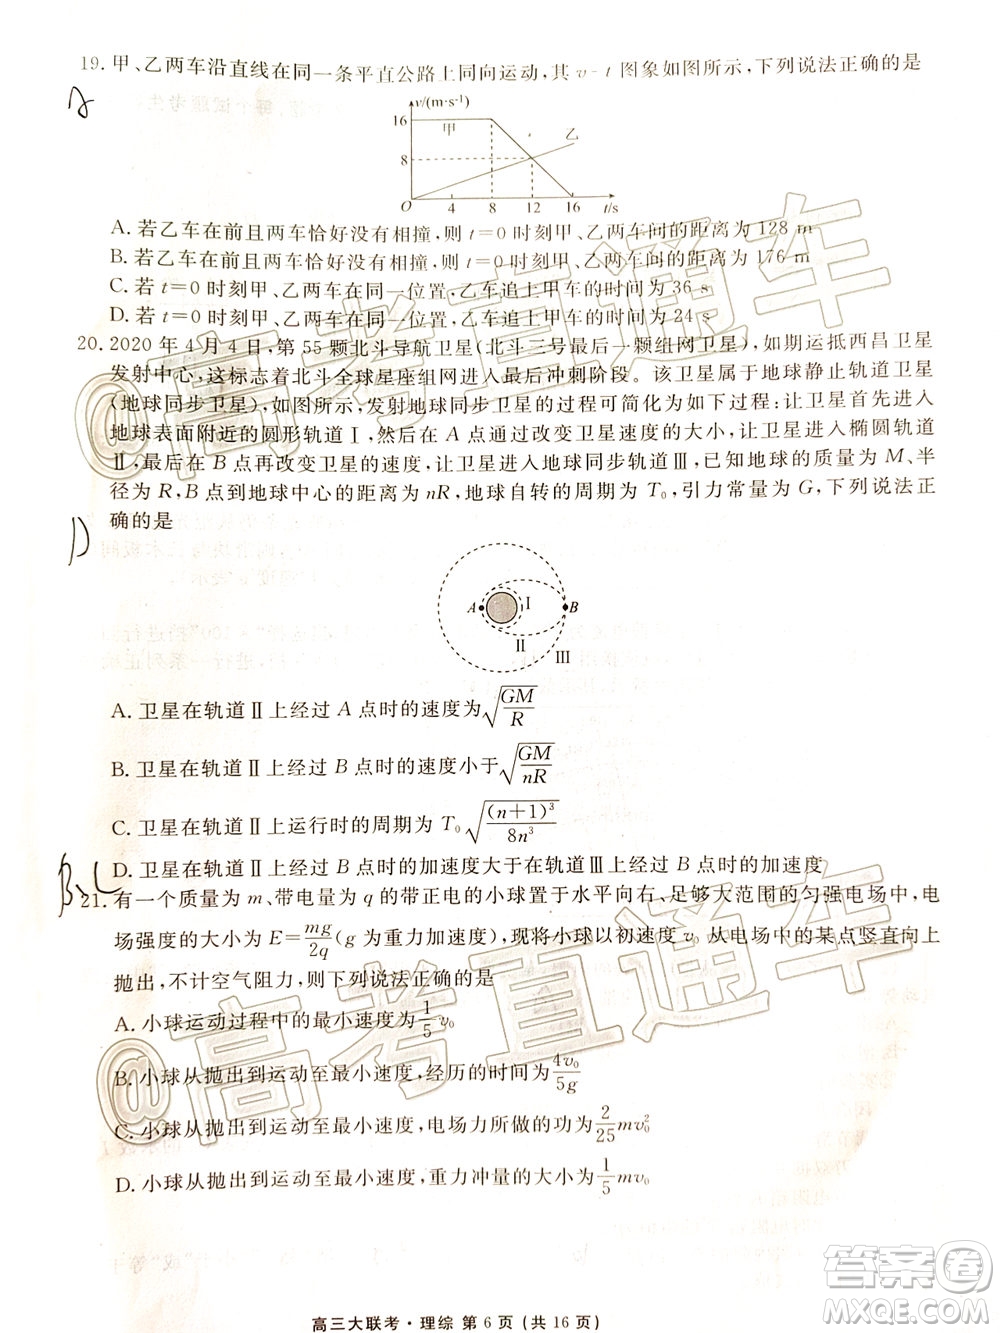 19. 甲、乙两车沿直线在同一条平直公路上同向运动,其 v-t 图象如图所示,下列说法正确的是
A
v/(m·s-1)
16
甲
乙
8
O 4 8 12 16 t/s
A. 若乙车在前且两车恰好没有相撞,则 t=0 时刻甲、乙两车的距离为 128 m
B. 若乙车在前且两车恰好没有相撞,则 t=0 时刻甲、乙两车的距离为 176 m
C. 若 t=0 时刻甲、乙两车在同一位置,乙车追上甲车的时刻为 36 s
D. 若 t=0 时刻甲、乙两车在同一位置,乙车追上甲车的时刻为 24 s
20. 2020 年 4 月 4 日,第 55 颗北斗导航卫星(北斗三号最后一颗组网卫星),如期运抵西昌卫星
发射中心,这标志着北斗全球星座组网进入最后冲刺阶段。该卫星属于地球静止轨道卫星
(地球同步卫星),如图所示,发射地球同步卫星的过程可简化为如下过程:让卫星首先进入
地球表面附近的圆形轨道Ⅰ,然后在 A 点通过改变卫星速度的大小,让卫星进入椭圆轨道
Ⅱ,最后在 B 点再改变卫星的速度,让卫星进入地球同步轨道Ⅲ,已知地球的质量为 M、半
径为 R,B 点到地球中心的距离为 nR,地球自转的周期为 T0,引力常量为 G,下列说法正
确的是
D
A Ⅰ B
Ⅱ
Ⅲ
A. 卫星在轨道Ⅱ上经过 A 点时的速度为√(GM/R)
B. 卫星在轨道Ⅱ上经过 B 点时的速度小于√(GM/nR)
C. 卫星在轨道Ⅱ上运行时的周期为 T0√((n+1)³/8n³)
D. 卫星在轨道Ⅱ上经过 B 点时的加速度大于在轨道Ⅲ上经过 B 点时的加速度
21. 有一个质量为 m、带电量为 q 的带正电的小球置于水平向右、足够大范围的匀强电场中,电
场强度的大小为 E=mg/2q(g 为重力加速度),现将小球以初速度 v0 从电场中的某点竖直向上
抛出,不计空气阻力,则下列说法正确的是
A. 小球运动过程中的最小速度为 1/5 v0
B. 小球从抛出到运动至最小速度,经历的时间为 4v0/5g
C. 小球从抛出到运动至最小速度,电场力所做的功为 2/25 mv0²
D. 小球从抛出到运动至最小速度,重力冲量的大小为 1/5 mv0
高三大联考·理综 第 6 页(共 16 页)
@高考直通车
@高考直通车
答案圈
MXQE.COM